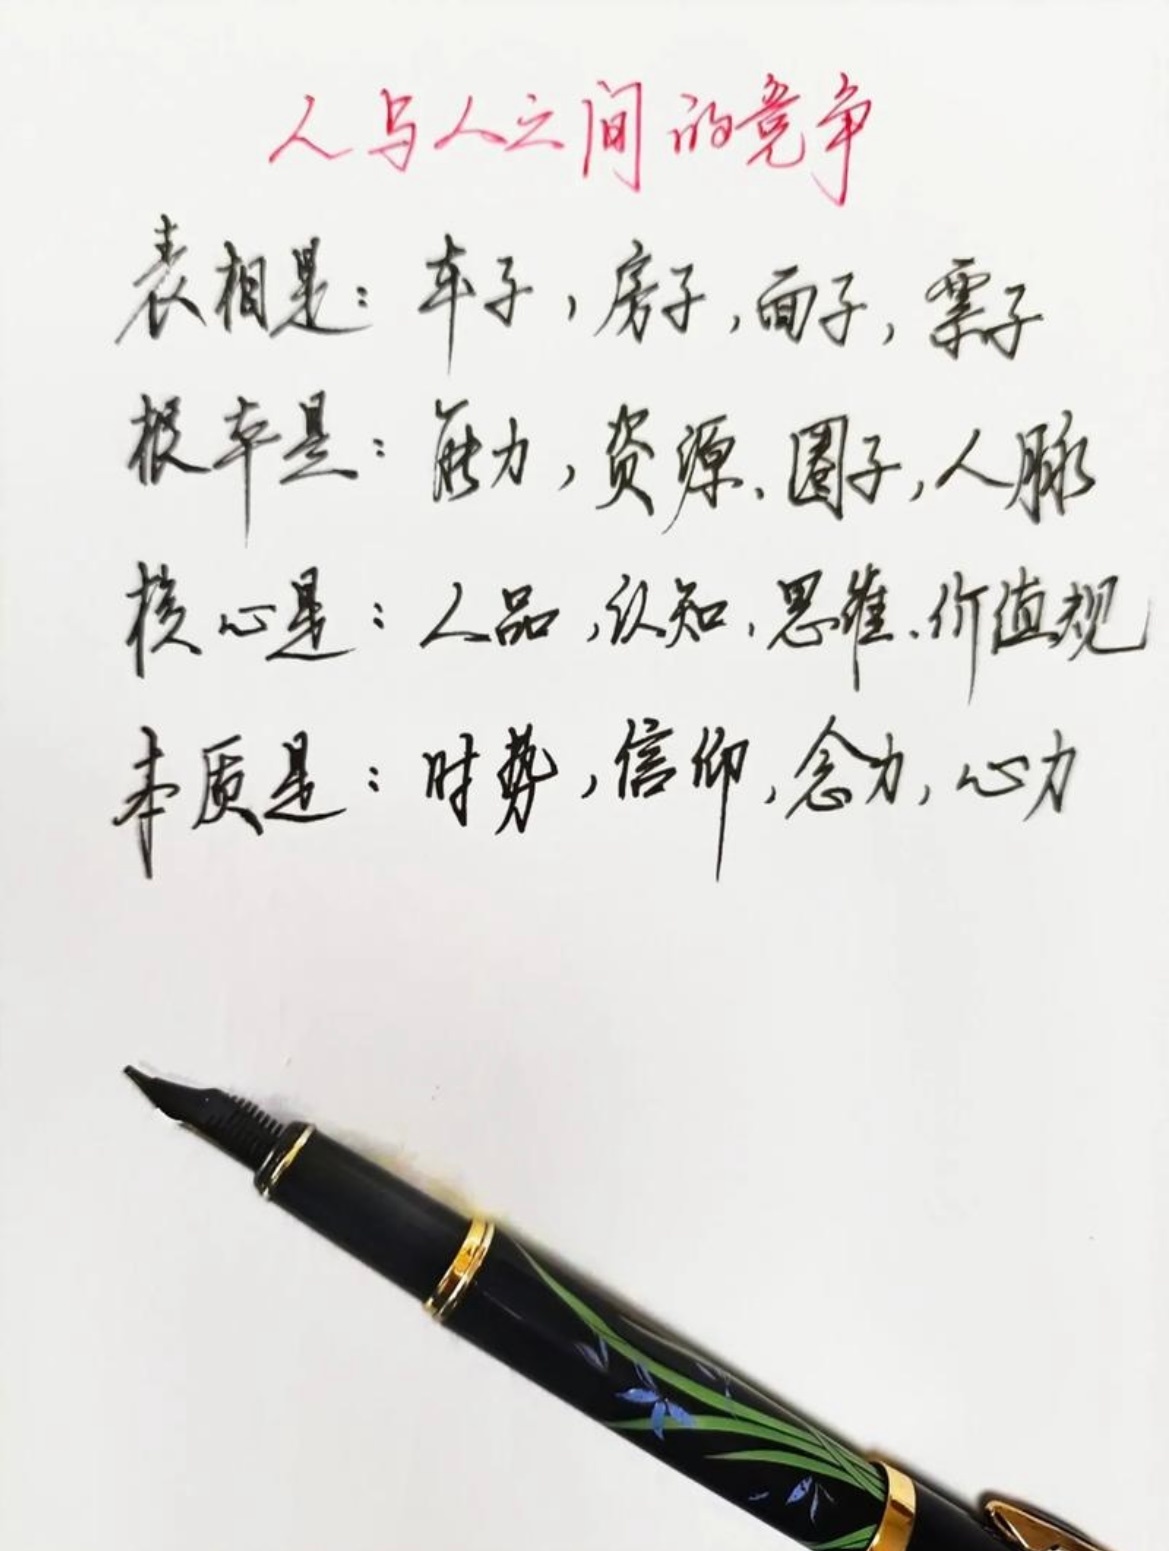 人与人之间的竞争
表相是：车子，房子，面子，票子
根本是：能力，资源、圈子，人脉
核心是：人品，认知，思维、价值观
本质是：时势，信仰，念力，心力